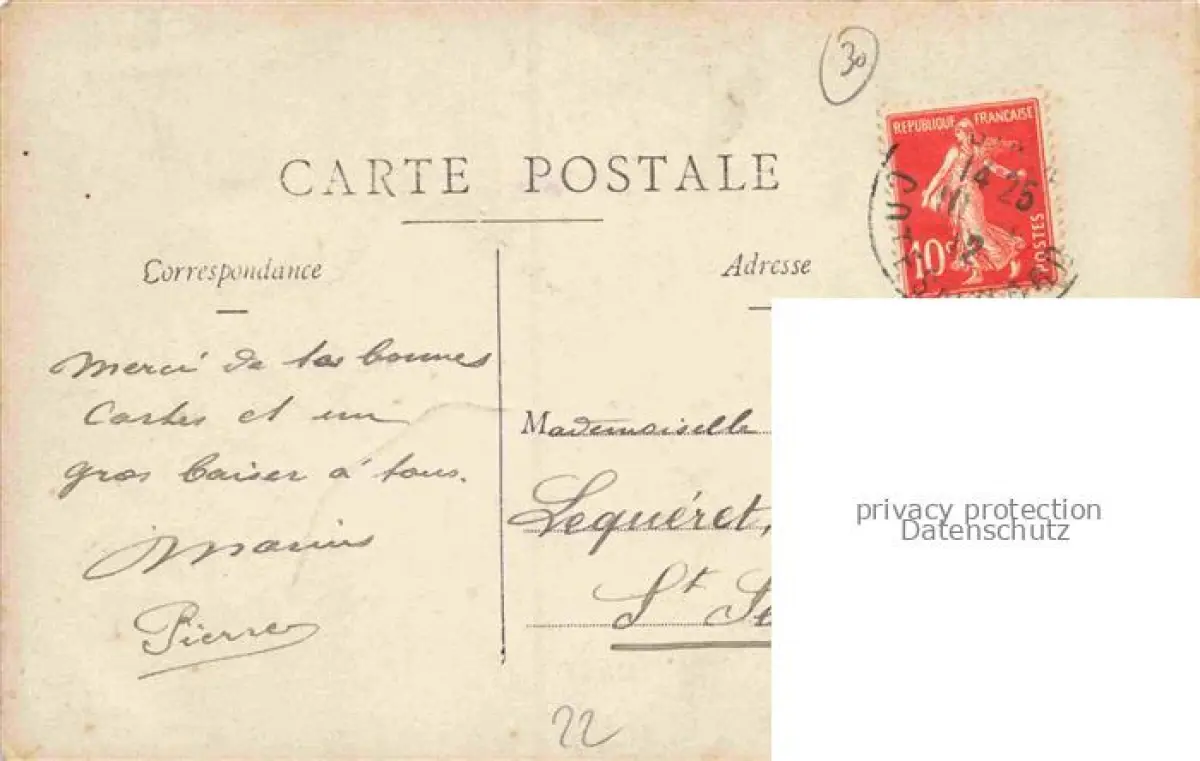 30
CARTE POSTALE
REPUBLIQUE FRANÇAISE
10c POSTES
14 25
12
Correspondance
Adresse
Merci de tes bonnes
Cartes et un
gros baiser à tous.
Marius
Pierre
Mademoiselle
Lequéret,
St Se
privacy protection
Datenschutz
22